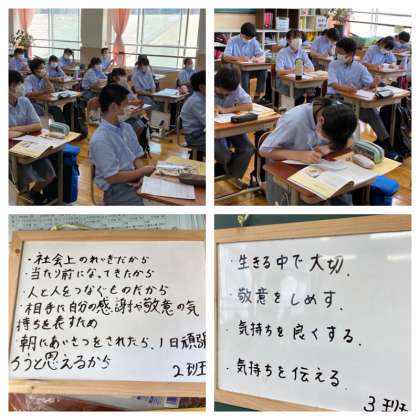 ・社会上のれいぎだから
・当たり前になってきたから
・人と人をつなぐものだから
・相手に自分の感謝や敬意の気
持ちを表すため
・朝にあいさつをされたら、1日頑張
ろうと思えるから
2班
・生きる中で大切.
・敬意をしめす.
・気持ちを良くする.
・気持ちを伝える.
3班